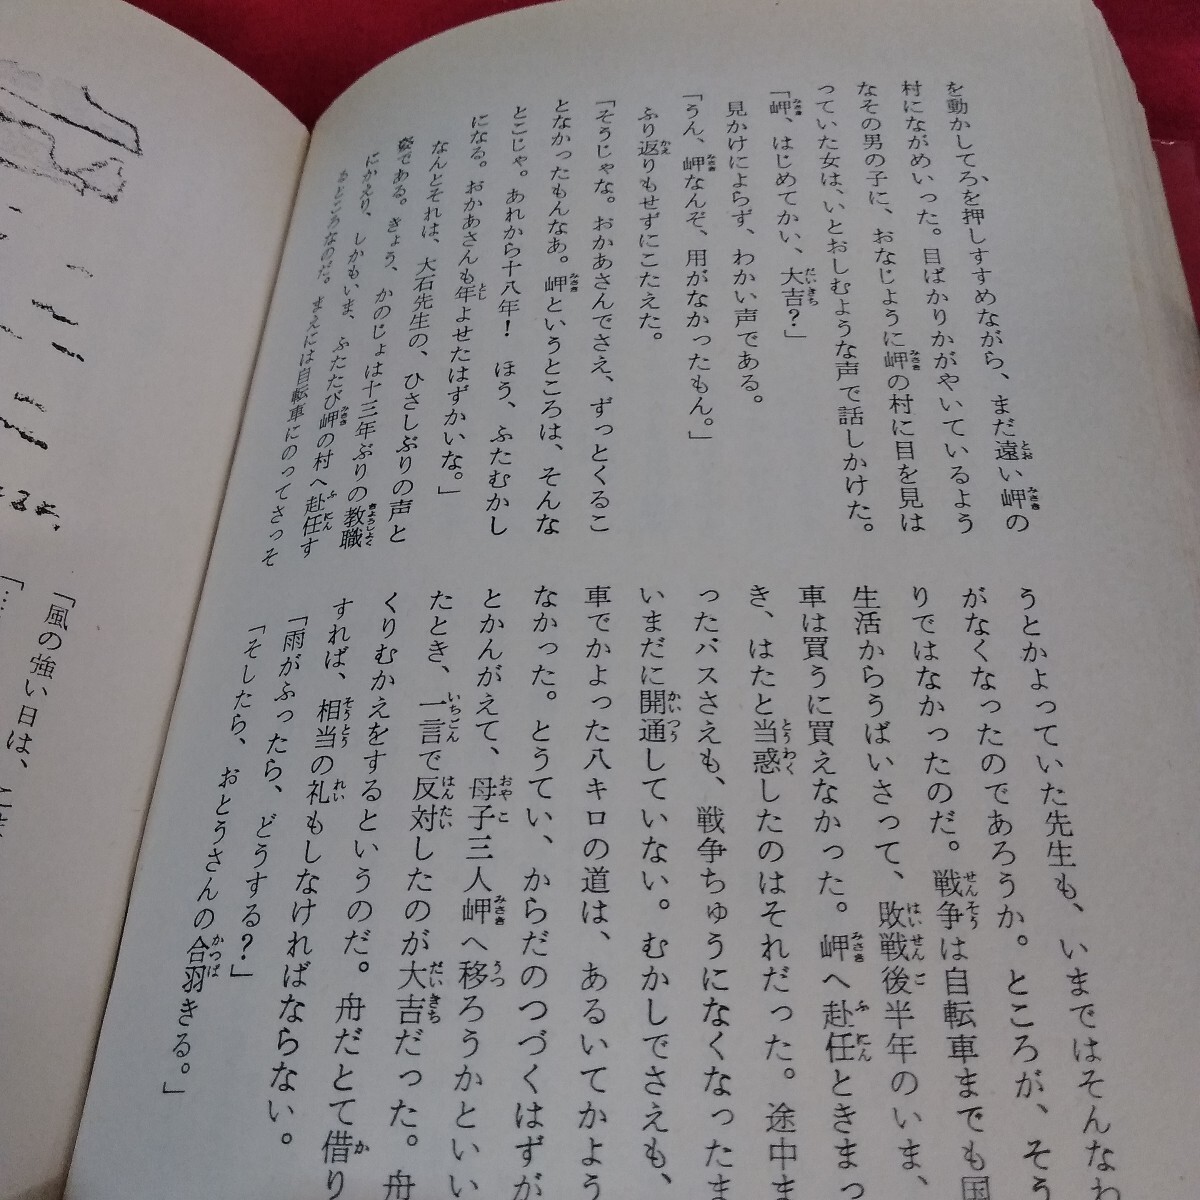 を動かしてろを押しすすめながら、まだ遠い岬の
村にながめいった。目ばかりかがやいているよう
なその男の子に、おなじように岬の村に目を見は
っていた女は、いとおしむような声で話しかけた。
「岬、はじめてかい、大吉？」
見かけによらず、わかい声である。
「うん、岬なんぞ、用がなかったもん。」
ふり返りもせずにこたえた。
「そうじゃな。おかあさんでさえ、ずっとくるこ
となかったもんなあ。岬というところは、そんな
とこじゃ。あれから十八年！　ほう、ふたむかし
になる。おかあさんも年よせたはずかいな。」
なんとそれは、大石先生の、ひさしぶりの声と
姿である。きょう、かのじょは十三年ぶりの教職
にかえり、しかもいま、ふたたび岬の村へ赴任す
るところなのだ。まえには自転車にのってさっそ
うとかよっていた先生も、いまではそんなわ
がなくなったのであろうか。ところが、そう
りではなかったのだ。戦争は自転車までも国
生活からうばいさって、敗戦後半年のいま、
車は買うに買えなかった。岬へ赴任ときまっ
き、はたと当惑したのはそれだった。途中ま
ったバスさえも、戦争ちゅうになくなったま
いまだに開通していない。むかしでさえも、
車でかよった八キロの道は、あるいてかよう
なかった。とうてい、からだのつづくはずが
とかんがえて、母子三人岬へ移ろうかといい
たとき、一言で反対したのが大吉だった。舟
くりむかえをするというのだ。舟だとて借り
すれば、相当の礼もしなければならない。
「雨がふったら、どうする？」
「そしたら、おとうさんの合羽きる。」
「風の強い日は、
「……